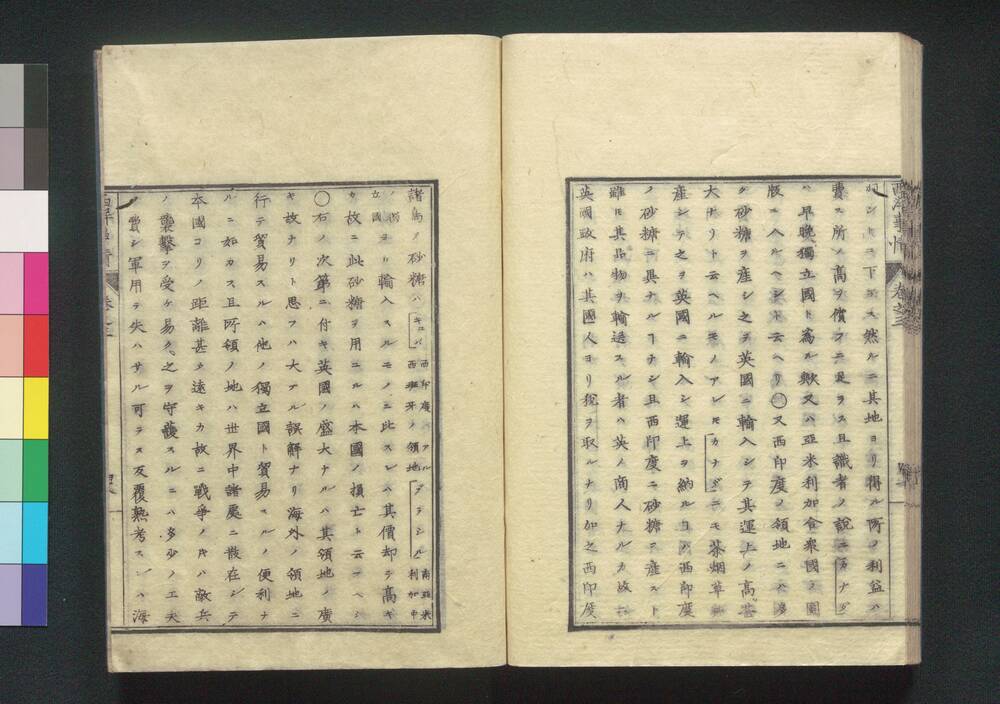 ス然ルニ其地ヨリ得ル所ノ利益ハ
費ス所ノ高ヲ償フニ足ラス且識者ノ説ニカナダ
ハ早晩獨立國ト為ル歟又ハ亞米利加合衆國ノ
版ニ入ルヘシト云ヘリ○又西印度ノ領地ニハ多
ク砂糖ヲ産シ之ヲ英國ニ輸入シテ其運上ノ高甚
大ナリト云ヘモノアレカナダニモ茶烟草
産シテ之ヲ英國ニ輸入シ運上ヲ納ルヿハ西印度
ノ砂糖ニ異ナルヿナシ且西印度ニ砂糖ヲ産スト
雖𪜈其品物ヲ輸送スル者ハ英ノ商人ナルカ故ニ
英國政府ハ其國人ヨリ税ヲ取ルナリ加之西印度
西洋事情 卷之三
諸島ノ砂糖ハキユバ西印度ニアル西班牙ノ領地ブラシル南亞米利加中ノ獨立國ヨリ輸入スルモノニ比スレハ其價却テ高キ
カ故ニ此砂糖ヲ用ユルハ本國ノ損亡ト云フヘシ
○右ノ次第ニ付キ英國ノ盛大ナルハ其領地ノ廣
キ故ナリト思フハ大ナル誤解ナリ海外ノ領地ニ
行テ貿易スルハ他ノ獨立國ト貿易スルノ便利ナ
ルニ如カス且所領ノ地ハ世界中諸處ニ散在シテ
本國ヨリノ距離甚タ遠キカ故ニ戰爭ノ𪜈ハ敵兵
ノ襲擊ヲ受ケ易ク之ヲ守護スルニハ多少ノ工夫
ヲ費シ軍用ヲ失ハサル可ラス反覆熟考スレハ海